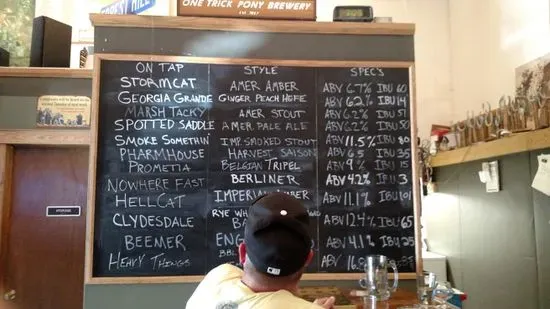 ONE TRICK PONY BREWERY
ON TAP STYLE SPEC'S
STORMCAT AMER AMBER ABV 6.7% IBU 60
GEORGIA GRANDE GINGER PEACH HEFE ABV 6.2% IBU 14
MARSH TACKY AMER STOUT ABV 6.2% IBU 51
SPOTTED SADDLE AMER PALE ALE ABV 6.2% IBU 50
SMOKE SOMETHIN' IMP. SMOKED STOUT ABV 11.5% IBU 80
PHARMHOUSE HARVEST SAISON ABV 6.5 IBU 35
PROMETTA BELGIAN TRIPEL ABV 9% IBU 15
NOWHERE FAST BERLINER ABV 4.2% IBU 3
HELLCAT IMPERIAL AMBER ABV 11.1% IBU 101
CLYDESDALE RYE ABV 12.4% IBU 65
BEEMER ABV 4.1% IBU 25
HEAVY THINGS BBL ABV